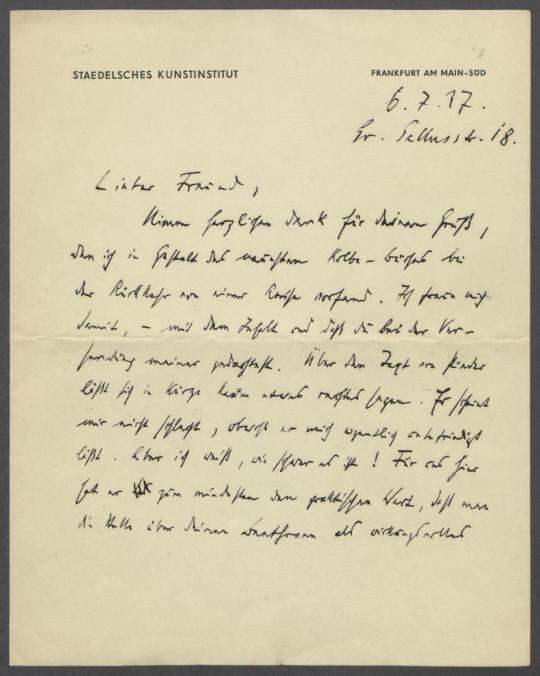 STAEDELSCHES KUNSTINSTITUT
FRANKFURT AM MAIN-SÜD
6.7.37.
Gr. Gallusstr. 18.
Lieber Freund,
Nimm herzlichen Dank für deinen Gruß,
den ich in Gestalt des neuesten Kolbe-buches bei
der Rückkehr von einer Reise vorfand. Ich freue mich
damit, – mit dem Inhalt und daß du bei der Ver-
sendung meiner gedachtest. Über den Text von Pinder
läßt sich in Kürze kaum etwas rechtes sagen. Er scheint
mir nicht schlecht, obwohl er mich eigentlich unbefriedigt
läßt. Aber ich weiß, wie schwer es ist! Für uns hier
hat er zum mindesten den praktischen Wert, daß man
die Stelle über deinen Beethoven als wirkungsvolles